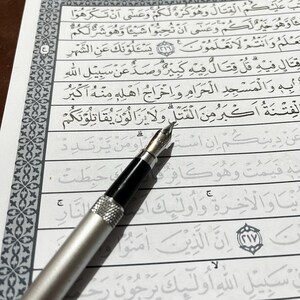 عَلَيْكُمُ الْقِتَالُ وَهُوَ كُرْهٌ لَكُمْ وَعَسٰى اَنْ تَكْرَهُوا
وَهُوَ خَيْرٌ لَكُمْ وَعَسٰى اَنْ تُحِبُّوا شَيْـًٔا وَهُوَ شَرٌّ لَكُمْ
يَعْلَمُ وَاَنْتُمْ لَا تَعْلَمُونَ ٢١٦ يَسْـَٔلُونَكَ عَنِ الشَّهْرِ
قِتَالٍ فِيهِ قُلْ قِتَالٌ فِيهِ كَبِيرٌ وَصَدٌّ عَنْ سَبِيلِ اللّٰهِ
بِهِ وَالْمَسْجِدِ الْحَرَامِ وَاِخْرَاجُ اَهْلِهِ مِنْهُ اَكْبَرُ
وَالْفِتْنَةُ اَكْبَرُ مِنَ الْقَتْلِ وَلَا يَزَالُونَ يُقَاتِلُونَكُمْ
دِينِكُمْ اِنِ وَمَنْ يَرْتَدِدْ
فَيَمُتْ وَهُوَ حَبِطَتْ
وَالْاٰخِرَةِ وَاُولٰٓئِكَ النَّارِ
٢١٧ اِنَّ الَّذِينَ اٰمَنُوا
سَبِيلِ اللّٰهِ اُولٰٓئِكَ يَرْجُونَ